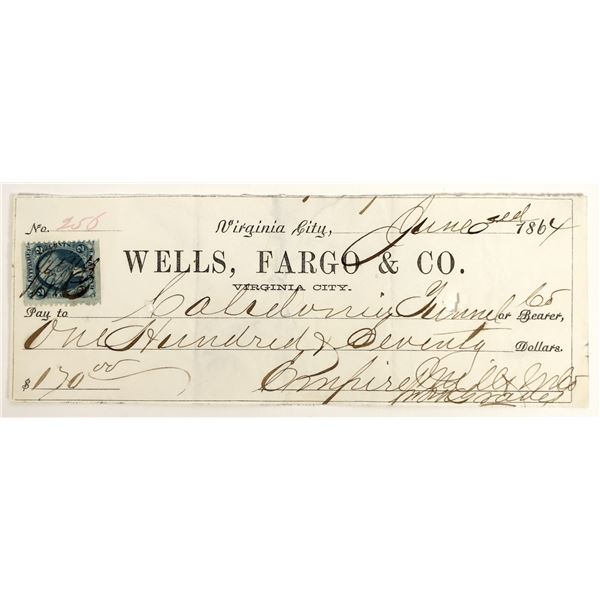 No. 256
Virginia City, June 3rd 1864
WELLS, FARGO & CO.
VIRGINIA CITY.
Pay to Caledonia Tunnel Co or Bearer,
One Hundred & Seventy Dollars.
$170.00 Empire Mill & M Co
Graves